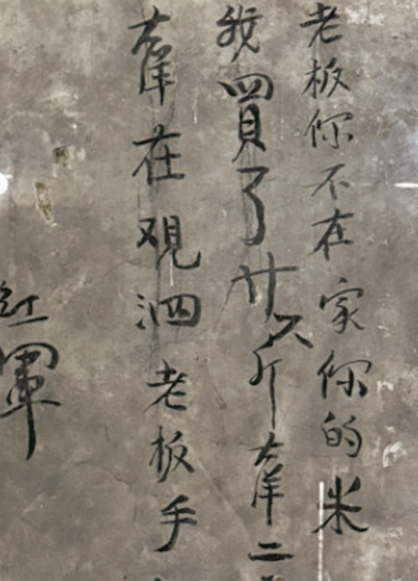 老板你不在家你的米
我買了廿六斤大洋二
大洋在观泗老板手
紅軍